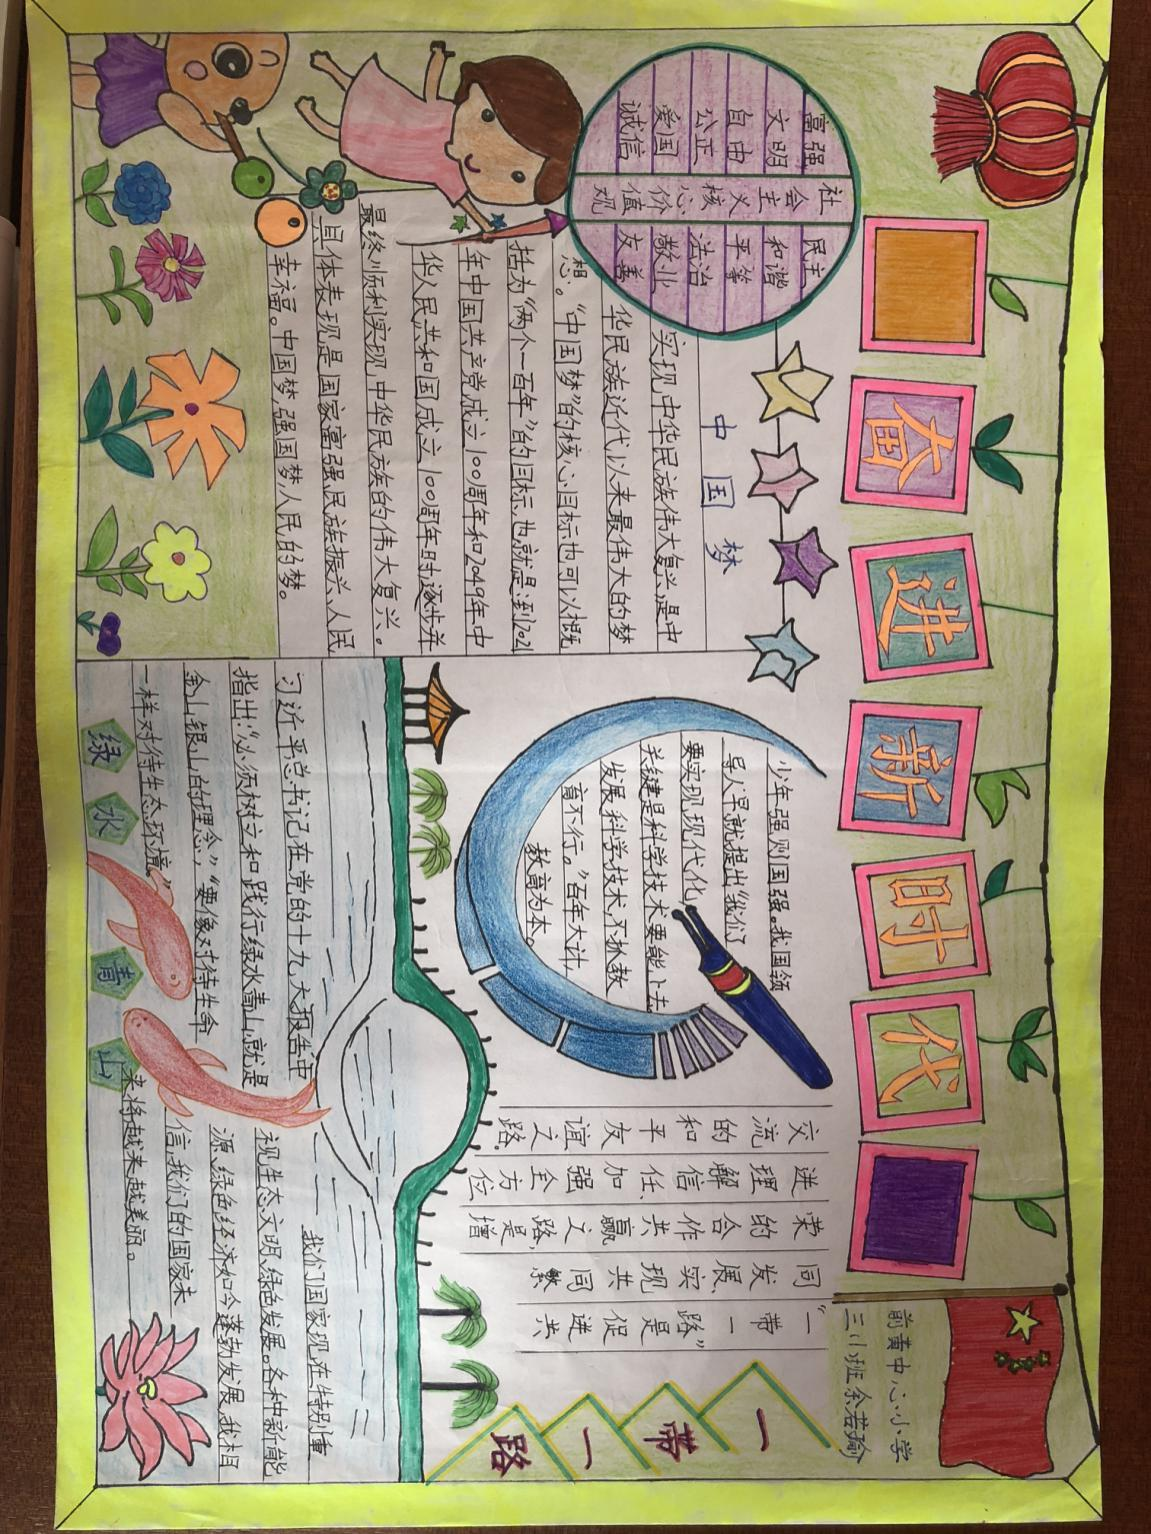 奋进新时代
前黄中心小学
三(1)班余若瑜
富强
文明
自由
公正
爱国
诚信
社会主义核心价值观
民主
和谐
平等
法治
敬业
友善
中国梦
实现中华民族伟大复兴,是中
华民族近代以来最伟大的梦
想。“中国梦”的核心目标也可以概
括为“两个一百年”的目标,也就是:到2021
年中国共产党成立100周年和2049年中
华人民共和国成立100周年时,逐步并
最终顺利实现中华民族的伟大复兴。
具体表现是国家富强,民族振兴,人民
幸福。中国梦,强国梦,人民的梦。
少年强则国强。我国领
导人早就提出“我们
要实现现代化,
关键是科学技术要能上去
发展科学技术,不抓教
育不行。”百年大计,
教育为本。
一带一路
“一带一路”是促进共
同发展、实现共同繁
荣的合作共赢之路,是增
进理解信任、加强全方位
交流的和平友谊之路。
习近平总书记在党的十九大报告中
指出:“必须树立和践行绿水青山就是
金山银山的理念,”“要像对待生命
一样对待生态环境”
绿水青山
我们国家现在特别重
视生态文明,绿色发展。各种新能
源,绿色经济如今蓬勃发展,我相
信,我们的国家未
来将越来越美丽。